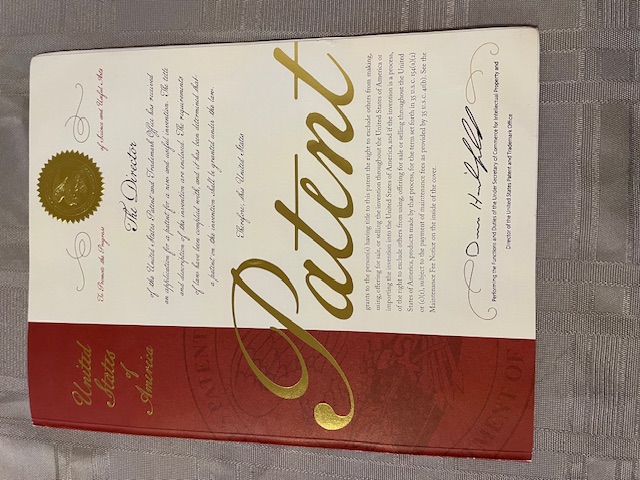 United
States
of
America
To Promote the Progress of Science and Useful Arts
The Director
of the United States Patent and Trademark Office has received
an application for a patent for a new and useful invention. The title
and description of the invention are enclosed. The requirements
of law have been complied with, and it has been determined that
a patent on the invention shall be granted under the law.
Therefore, this United States
Patent
grants to the person(s) having title to this patent the right to exclude others from making,
using, offering for sale, or selling the invention throughout the United States of America or
importing the invention into the United States of America, and if the invention is a process,
of the right to exclude others from using, offering for sale or selling throughout the United
States of America, products made by that process, for the term set forth in 35 U.S.C. 154(a)(2)
or (c)(1), subject to the payment of maintenance fees as provided by 35 U.S.C. 41(b). See the
Maintenance Fee Notice on the inside of the cover.
Performing the Functions and Duties of the Under Secretary of Commerce for Intellectual Property and
Director of the United States Patent and Trademark Office
PATENT
MENT OF